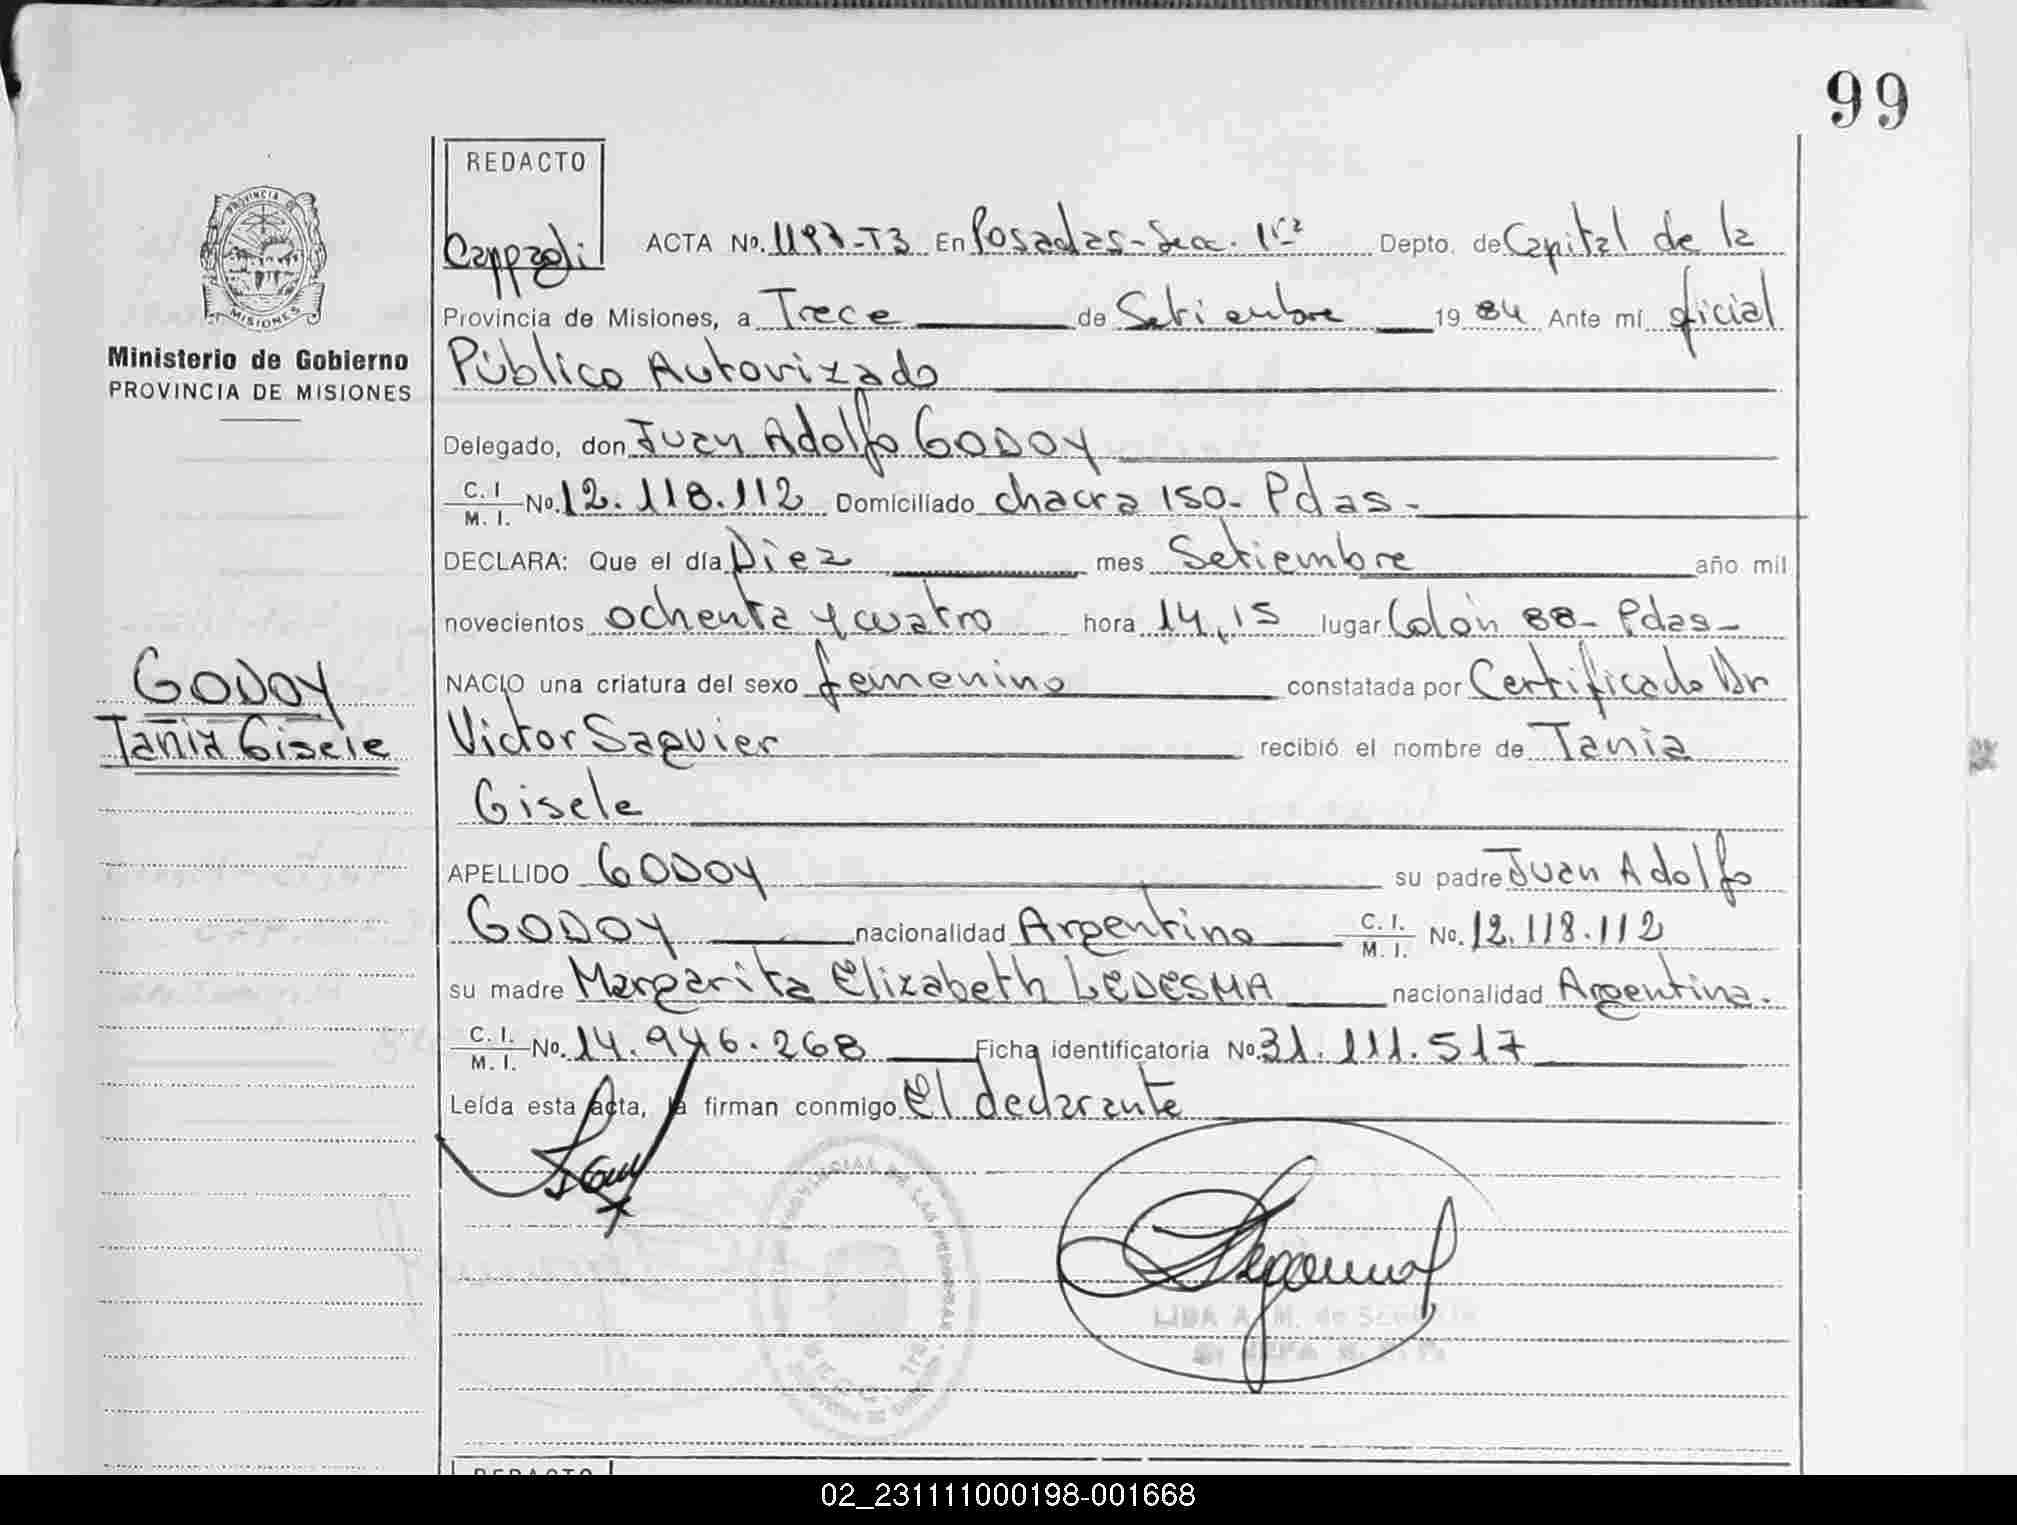 99
REDACTO
Cappagli
ACTA No. 1197-T3 En Posadas-Secc. 1ra Depto. de Capital de la
PROVINCIA DE
MISIONES
Provincia de Misiones, a Trece de Setiembre 1984 Ante mí oficial
Ministerio de Gobierno
PROVINCIA DE MISIONES
Público Autorizado
Delegado, don Juan Adolfo GODOY
C. I. M. I. No. 12.118.112 Domiciliado chacra 150- Pdas-
DECLARA: Que el día Diez mes Setiembre año mil
novecientos ochenta y cuatro hora 14,15 lugar Colón 88- Pdas-
GODOY
Tania Gisele
NACIO una criatura del sexo femenino constatada por Certificado Dr
Victor Saguier recibió el nombre de Tania
Gisele
APELLIDO GODOY su padre Juan Adolfo
GODOY nacionalidad Argentino C. I. M. I. No. 12.118.112
su madre Margarita Elizabeth LEDESMA nacionalidad Argentina.
C. I. M. I. No. 14.946.268 Ficha identificatoria No. 31.111.517
Leída esta acta, la firman conmigo El declarante
REDACTO
02_231111000198-001668